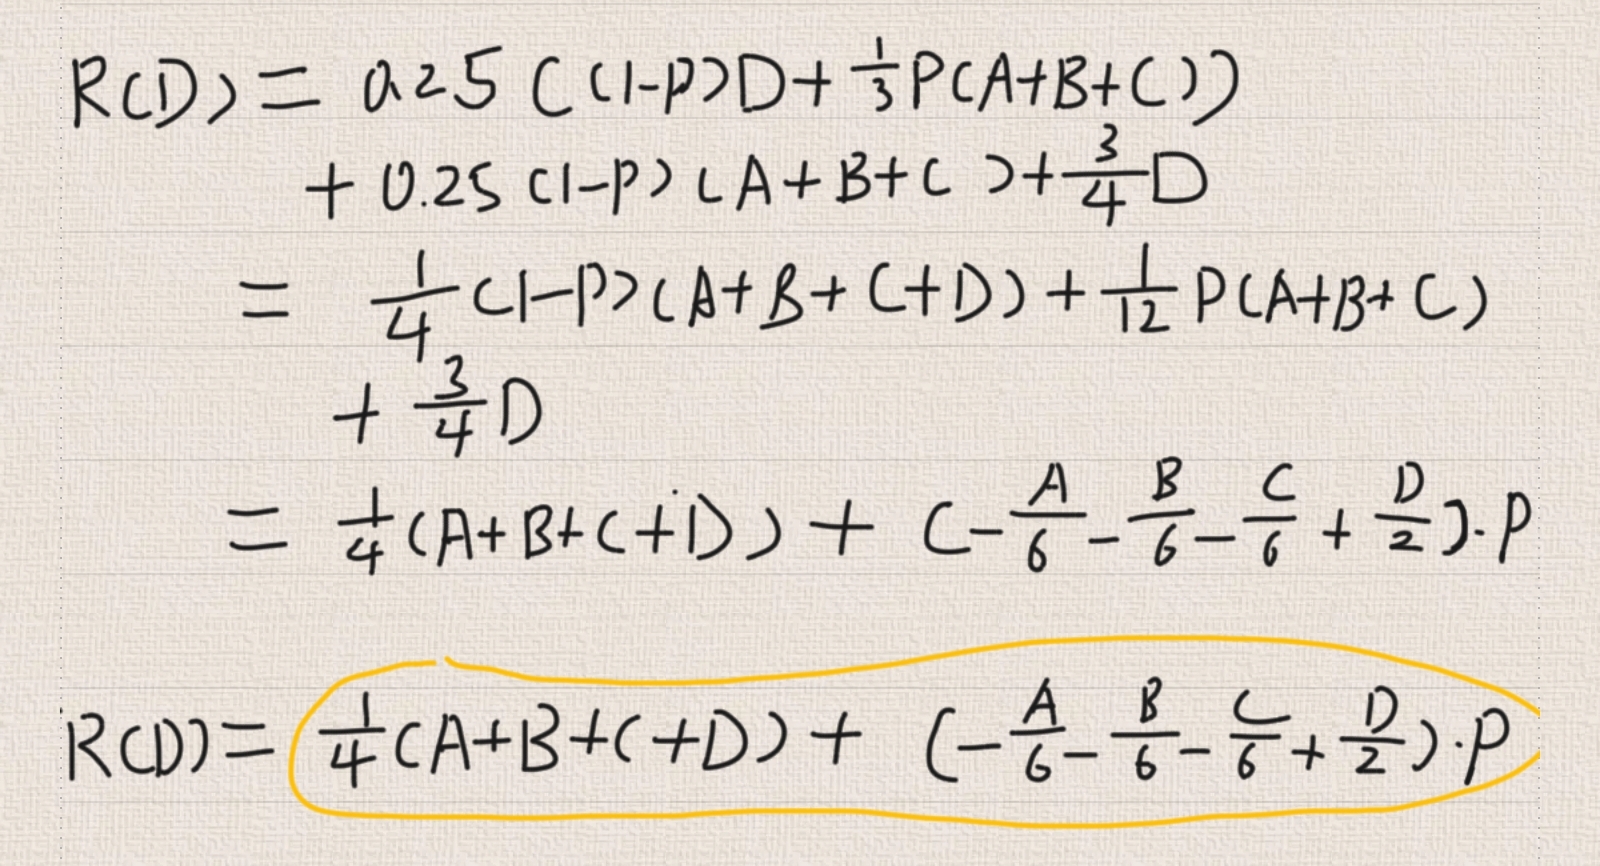 R(D) = 0.25 ((1-p)D + 1/3 P(A+B+C))
+ 0.25 (1-p) (A+B+C) + 3/4 D
= 1/4 (1-P)(A+B+C+D) + 1/12 P(A+B+C)
+ 3/4 D
= 1/4 (A+B+C+D) + (-A/6 - B/6 - C/6 + D/2)·P
R(D) = 1/4 (A+B+C+D) + (-A/6 - B/6 - C/6 + D/2)·P